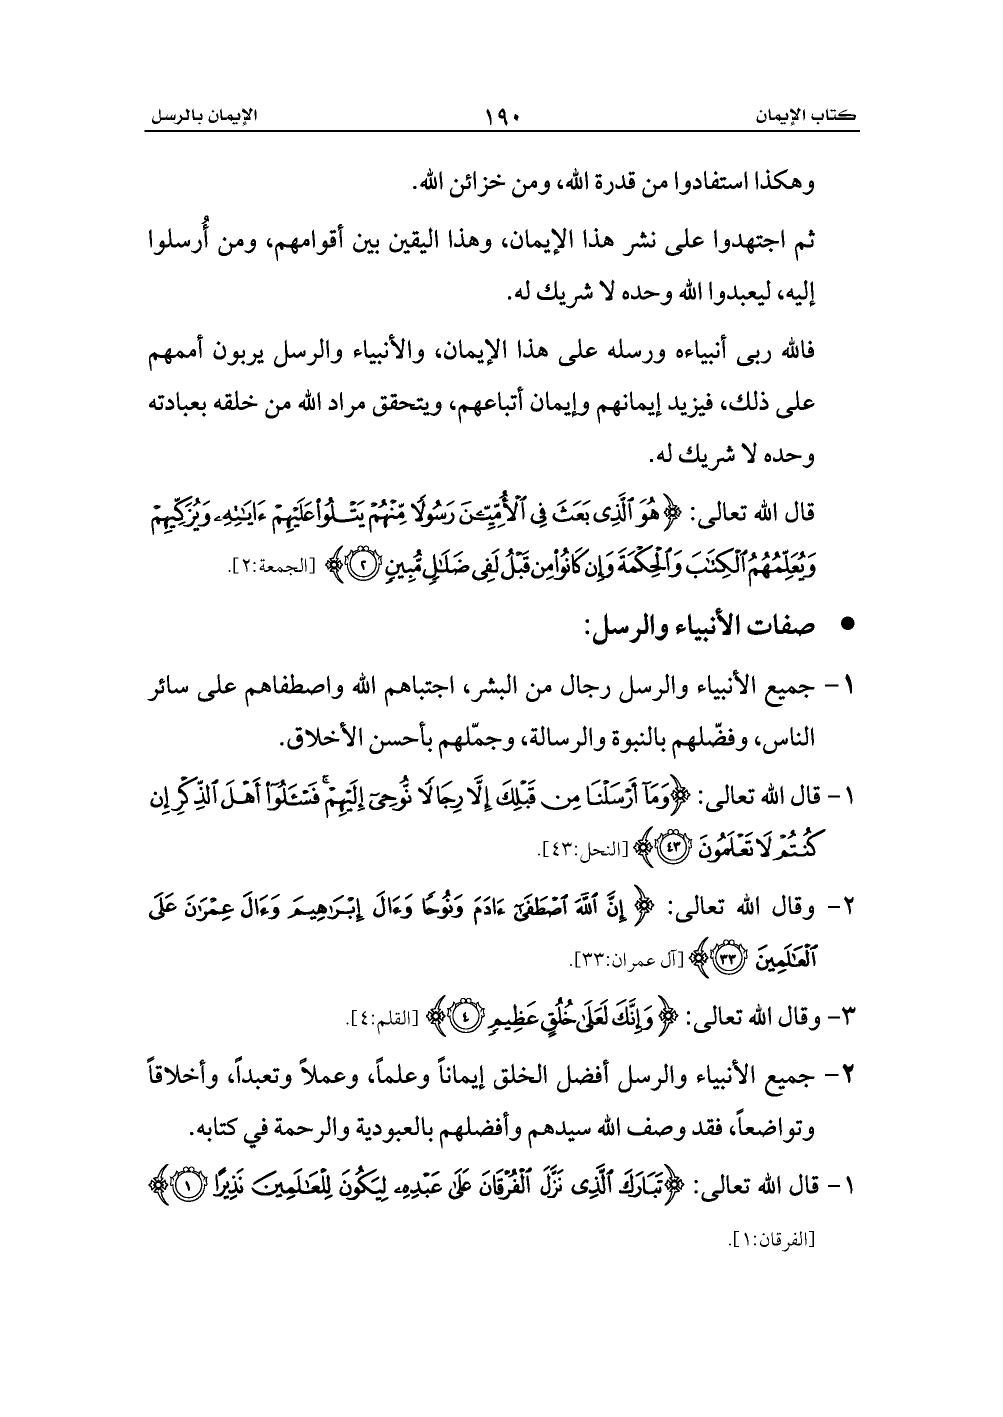 كتاب الإيمان ١٩٠ الإيمان بالرسل
وهكذا استفادوا من قدرة الله، ومن خزائن الله.
ثم اجتهدوا على نشر هذا الإيمان، وهذا اليقين بين أقوامهم، ومن أُرسلوا
إليه، ليعبدوا الله وحده لا شريك له.
فالله ربى أنبياءه ورسله على هذا الإيمان، والأنبياء والرسل يربون أممهم
على ذلك، فيزيد إيمانهم وإيمان أتباعهم، ويتحقق مراد الله من خلقه بعبادته
وحده لا شريك له.
قال الله تعالى: ﴿هُوَ ٱلَّذِى بَعَثَ فِى ٱلْأُمِّيِّـۧنَ رَسُولًا مِّنْهُمْ يَتْلُوا۟ عَلَيْهِمْ ءَايَـٰتِهِۦ وَيُزَكِّيهِمْ
وَيُعَلِّمُهُمُ ٱلْكِتَـٰبَ وَٱلْحِكْمَةَ وَإِن كَانُوا۟ مِن قَبْلُ لَفِى ضَلَـٰلٍ مُّبِينٍ ٢﴾ [الجمعة:٢].
● صفات الأنبياء والرسل:
١- جميع الأنبياء والرسل رجال من البشر، اجتباهم الله واصطفاهم على سائر
الناس، وفضّلهم بالنبوة والرسالة، وجمّلهم بأحسن الأخلاق.
١- قال الله تعالى: ﴿وَمَآ أَرْسَلْنَا مِن قَبْلِكَ إِلَّا رِجَالًا نُّوحِىٓ إِلَيْهِمْ ۚ فَسْـَٔلُوٓا۟ أَهْلَ ٱلذِّكْرِ إِن
كُنتُمْ لَا تَعْلَمُونَ ٤٣﴾ [النحل:٤٣].
٢- وقال الله تعالى: ﴿إِنَّ ٱللَّهَ ٱصْطَفَىٰٓ ءَادَمَ وَنُوحًا وَءَالَ إِبْرَٰهِيمَ وَءَالَ عِمْرَٰنَ عَلَى
ٱلْعَـٰلَمِينَ ٣٣﴾ [آل عمران:٣٣].
٣- وقال الله تعالى: ﴿وَإِنَّكَ لَعَلَىٰ خُلُقٍ عَظِيمٍ ٤﴾ [القلم:٤].
٢- جميع الأنبياء والرسل أفضل الخلق إيماناً وعلماً، وعملاً وتعبداً، وأخلاقاً
وتواضعاً، فقد وصف الله سيدهم وأفضلهم بالعبودية والرحمة في كتابه.
١- قال الله تعالى: ﴿تَبَارَكَ ٱلَّذِى نَزَّلَ ٱلْفُرْقَانَ عَلَىٰ عَبْدِهِۦ لِيَكُونَ لِلْعَـٰلَمِينَ نَذِيرًا ١﴾
[الفرقان:١].